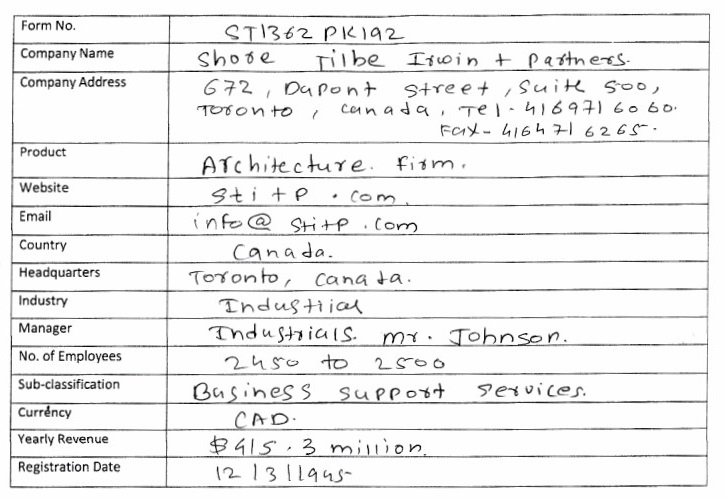 Form No. ST1362 PK192
Company Name Shore Tilbe Irwin + Partners.
Company Address 672, Dupont street, Suite 500,
Toronto, Canada, Tel - 416971 6060.
Fax - 416471 6265.
Product Architecture. firm.
Website sti+p.com.
Email info@sti+p.com
Country Canada.
Headquarters Toronto, Canada.
Industry Industrial
Manager Industrials. mr. Johnson.
No. of Employees 2450 to 2500
Sub-classification Business support services.
Currency CAD.
Yearly Revenue $415.3 million.
Registration Date 12/3/1945